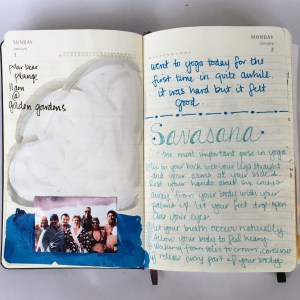 MONDAY
January
polar bear
plunge
11am
@
golden gardens
MONDAY
January
2
went to yoga today for the
first time in quite awhile.
it was hard but it felt
good
Savasana
the most important pose in yoga
lie on your back with your legs straight
and your arms at your sides.
Rest your hands about six inches
away from your body with your
palms up. Let your feet drop open
Close your eyes.
Let your breath occur naturally.
Allow your body to feel heavy.
Working from soles to crown, consciously
release every part of your body